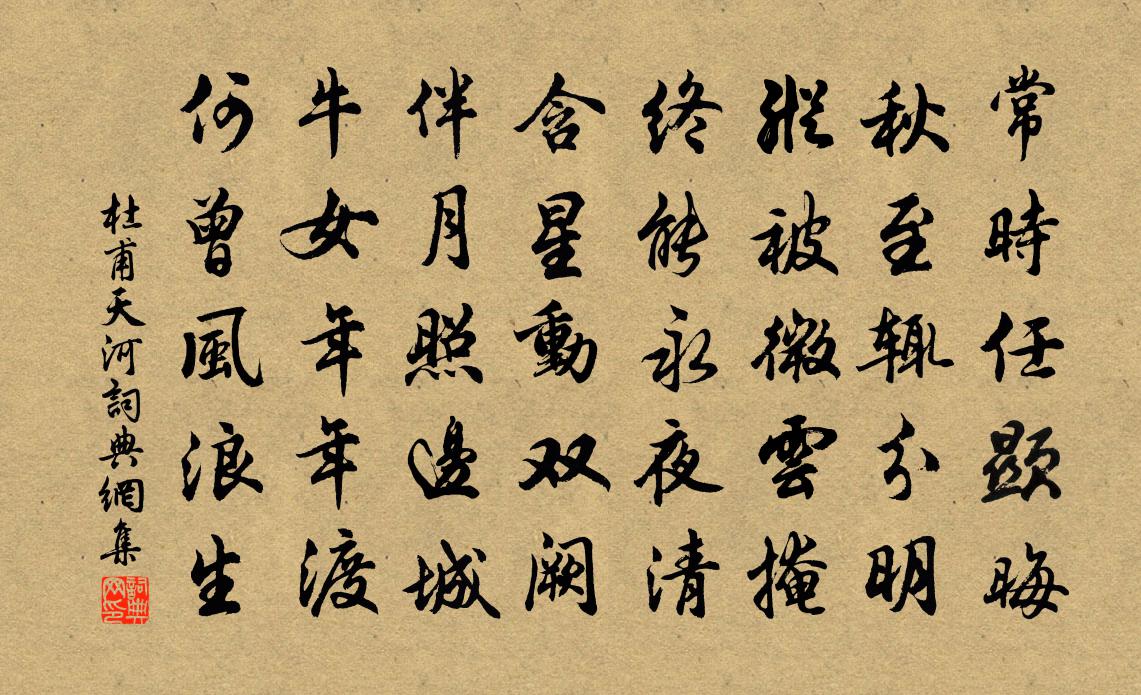 常時任顯晦
秋至輒分明
縱被微雲掩
終能永夜清
含星動双闕
伴月照邊城
牛女年年渡
何曾風浪生
杜甫天河詞典網集
詞典网印